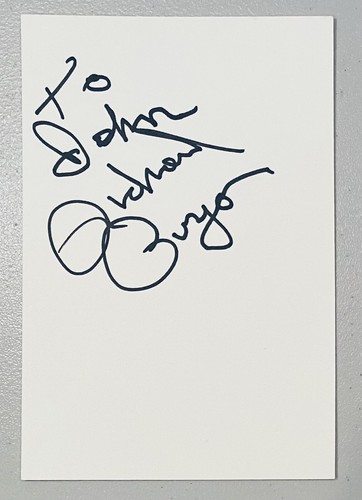 To
John
Richard
Pryor